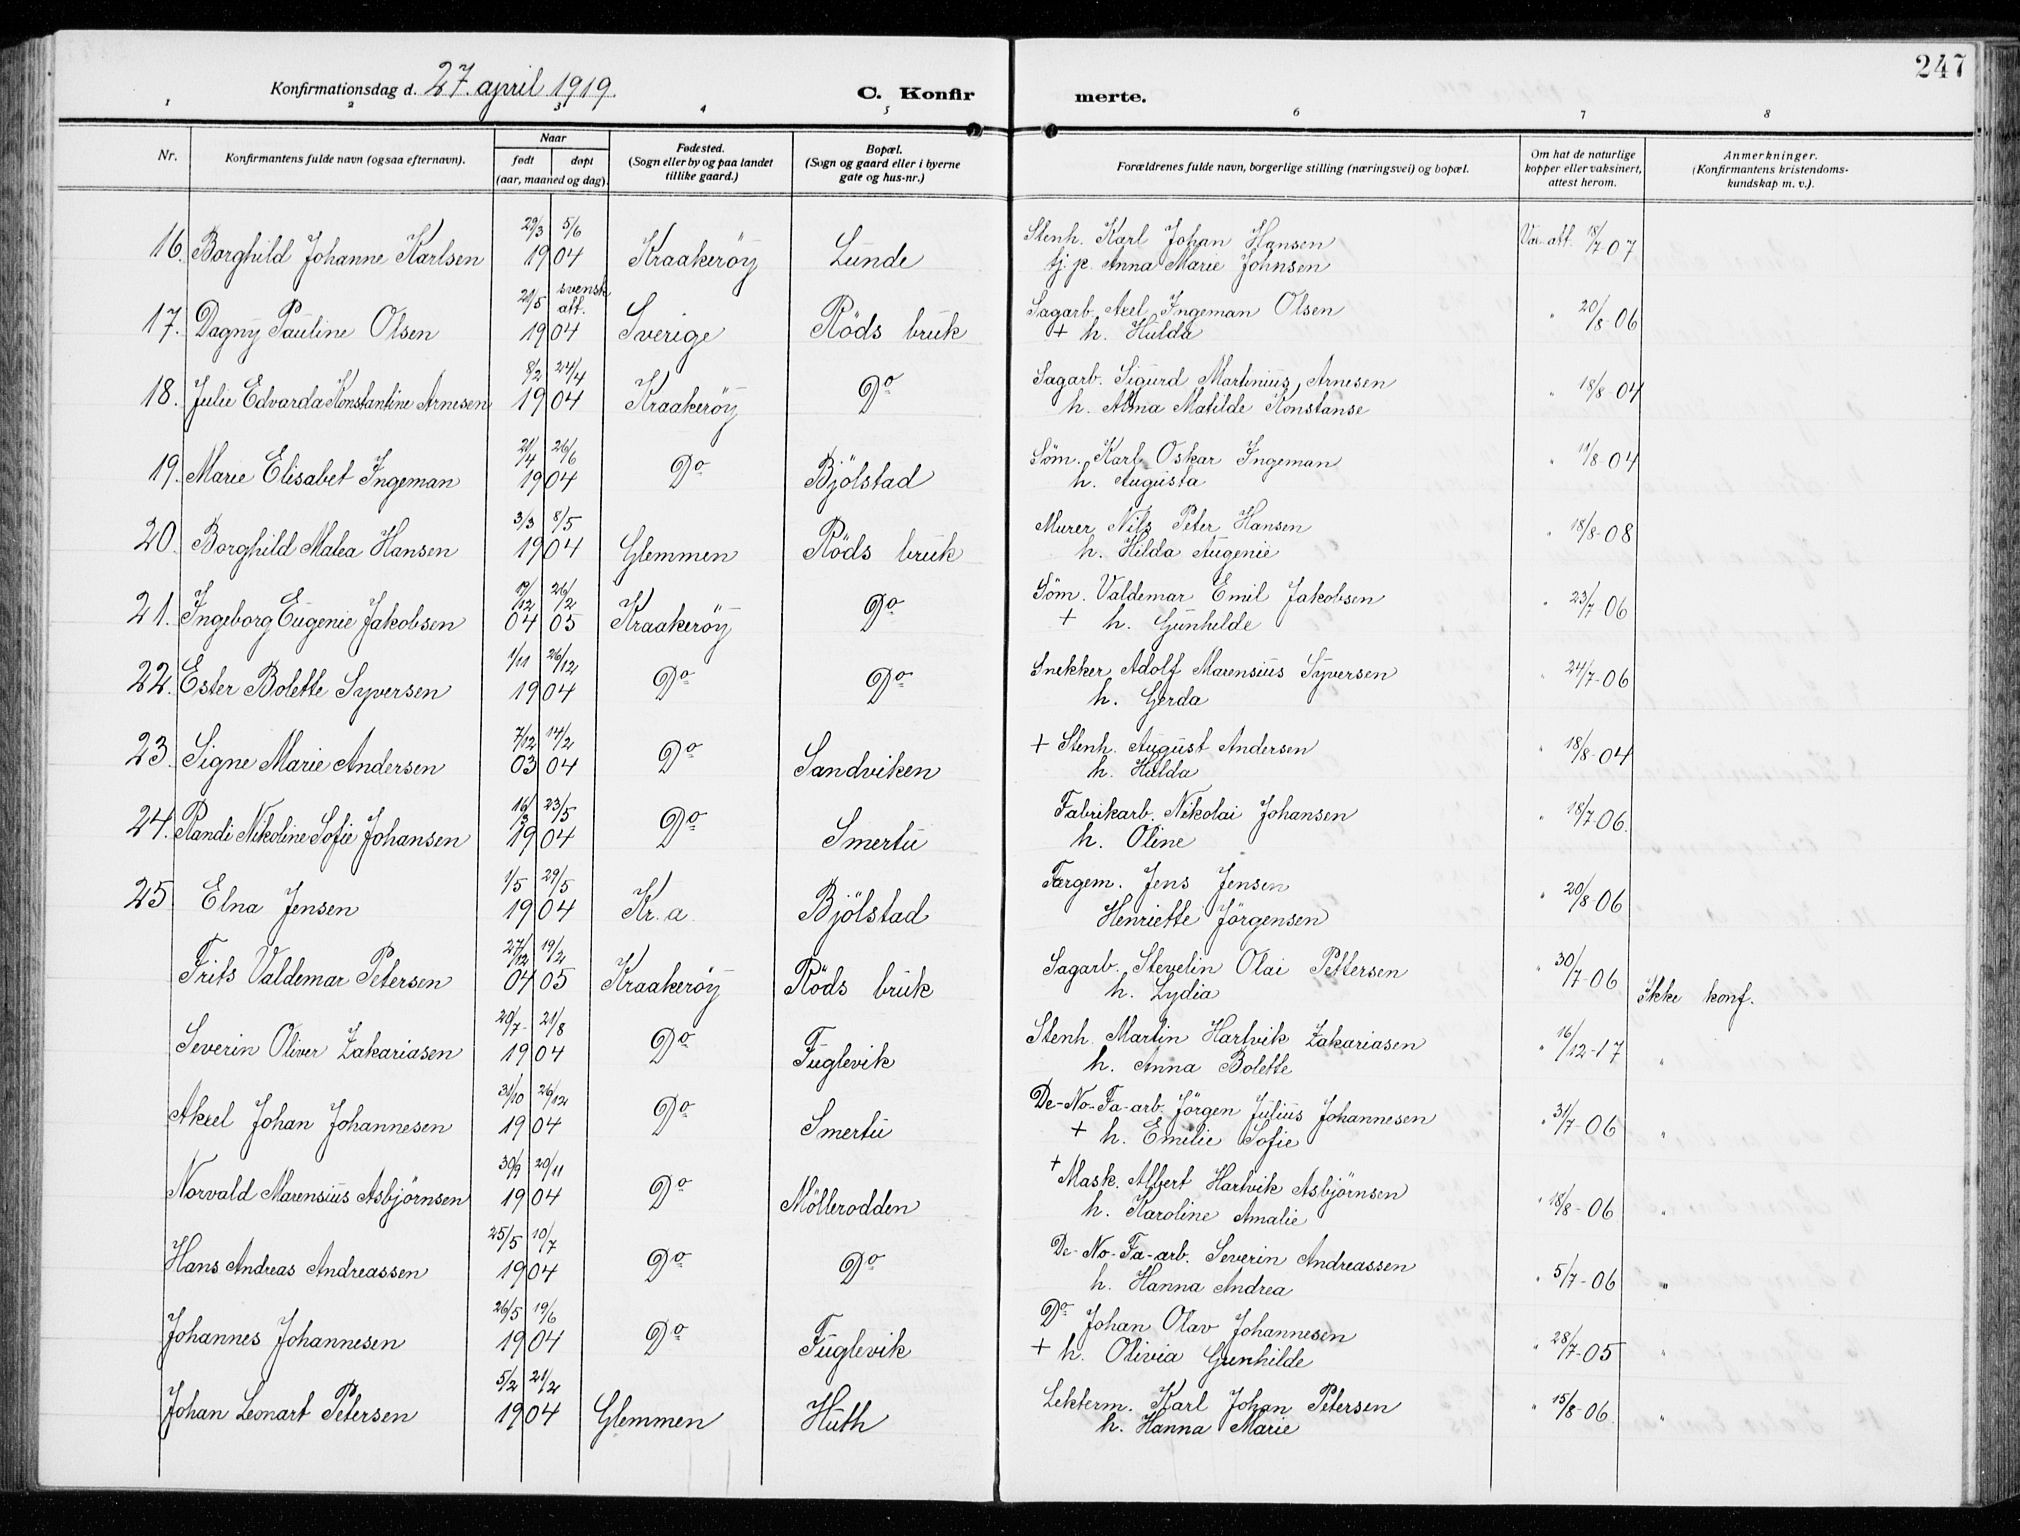 247
Konfirmationsdag d. 27. april 1919.
C. Konfirmerte.
1 2 3 4 5 6 7 8
Nr. | Konfirmantens fulde navn (ogsaa efternavn). | Naar født døpt (aar, maaned og dag). | Fødested. (Sogn eller by og paa landet tillike gaard.) | Bopæl. (Sogn og gaard eller i byerne gate og hus-nr.) | Forældrenes fulde navn, borgerlige stilling (næringsvei) og bopæl. | Om hat de naturlige kopper eller vaksinert, attest herom. | Anmerkninger. (Konfirmantens kristendomskundskap m. v.).
16. Borghild Johanne Karlsen 29/3 5/6 1904 Kraakeröy Lunde Stenh. Karl Johan Hansen Va. att. 18/7-07
tj. p. Anna Marie Johnsen
17. Dagny Pauline Olsen 21/5 svensk att. 1904 Sverige Röds bruk Sagarb. Axel Ingeman Olsen " 20/8-06
+ h. Hulda
18. Julie Edvarda Konstantine Arnesen 8/2 24/4 1904 Kraakeröy Do Sagarb. Sigurd Martinius Arnesen " 18/8-04
h. Alma Matilde Konstanse
19. Marie Elisabet Ingeman 21/4 26/6 1904 Do Bjölstad Söm. Karl Oskar Ingeman " 11/8-04
h. Augusta
20. Borghild Malea Hansen 3/3 8/5 1904 Glemmen Röds bruk Murer Nils Peter Hansen " 18/8-08
h. Hilda Augenie
21. Ingeborg Eugenie Jakobsen 19/12 04 26/2 05 Kraakeröy Do Söm. Valdemar Emil Jakobsen " 23/7-06
+ h. Gunhilde
22. Ester Bolette Syversen 1/11 26/12 1904 Do Do Snekker Adolf Marensius Syversen " 24/7-06
h. Gerda
23. Signe Marie Andersen 7/12 03 14/2 04 Do Sandviken + Stenh. August Andersen " 18/8-04
h. Hulda
24. Randi Nikoline Sofie Johansen 16/3 23/5 1904 Do Smertu Fabrikarb. Nikolai Johansen " 18/7-06.
h. Oline
25 Elna Jensen 1/5 29/5 1904 Kr.a. Bjölstad Færgem. Jens Jensen " 20/8-06
Henriette Jörgensen
Frits Valdemar Petersen 27/12 04 19/2 05 Kraakeröy Röds bruk Sagarb. Stevelin Olai Pettersen " 30/7-06 Ikke konf.
h. Lydia
Severin Oliver Zakariasen 20/7 21/8 1904 Do Fuglevik Stenh. Martin Hartvik Zakariasen " 16/12-17 "
h. Anna Bolette
Aksel Johan Johannesen 31/10 26/12 1904 Do Smertu De-No-Fa-arb. Jörgen Julius Johannesen " 31/7-06 "
+ h. Emilie Sofie
Norvald Marensius Asbjörnsen 30/9 20/11 1904 Do Möllerodden + Mask. Albert Hartvik Asbjörnsen " 18/8-06 "
h. Karoline Amalie
Hans Andreas Andreassen 25/5 10/7 1904 Do Do De-No-Fa-arb. Severin Andreassen " 5/7-06 "
h. Hanna Andrea
Johannes Johannesen 26/5 19/6 1904 Do Fuglevik Do Johan Olav Johannesen " 28/7-05 "
+ h. Olivia Gunhilde
Johan Leonart Petersen 5/2 21/2 1904 Glemmen Huth Lekterm. Karl Johan Petersen " 15/8-06 "
h. Hanna Marie